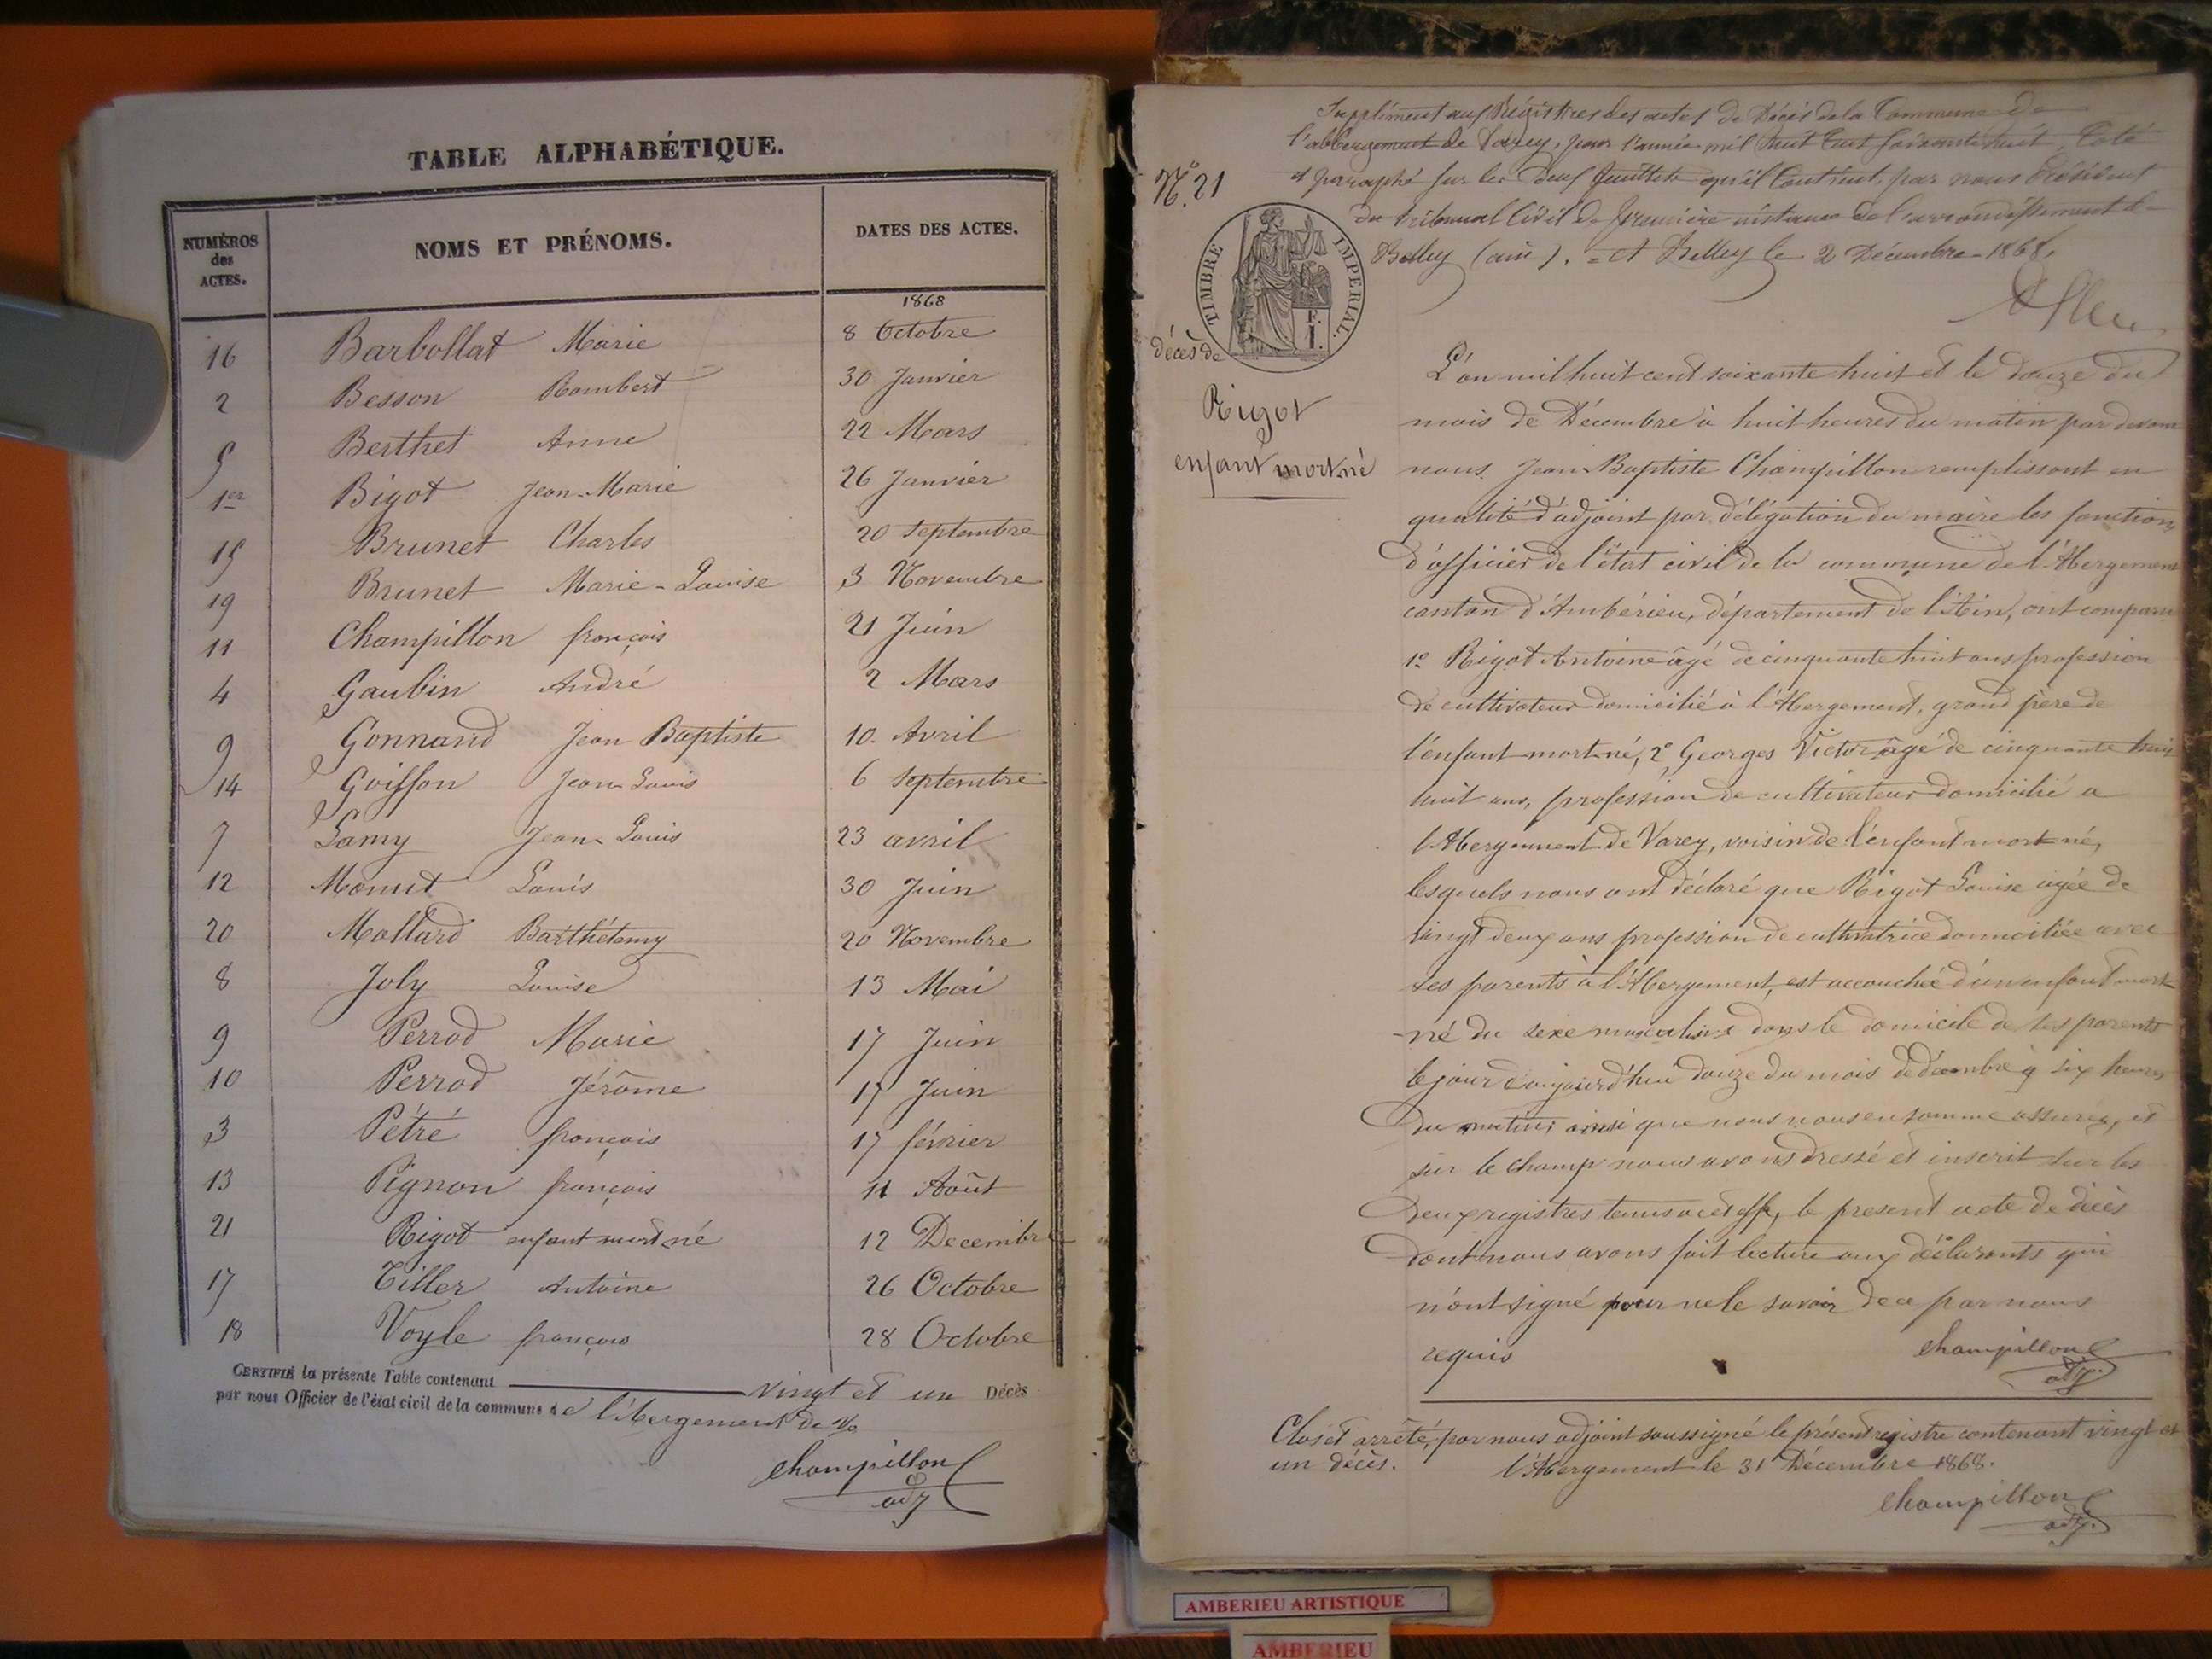 TABLE ALPHABÉTIQUE.
NUMÉROS des ACTES. NOMS ET PRÉNOMS. DATES DES ACTES.
1868
16 Barbollat Marie 8 Octobre
2 Besson Rambert 30 Janvier
5 Berthet Anne 22 Mars
1er Bigot Jean-Marie 26 Janvier
15 Brunet Charles 20 Septembre
19 Brunet Marie-Louise 3 Novembre
11 Champillon françois 21 Juin
4 Gaubin André 2 Mars
9 Gonnand Jean Baptiste 10 Avril
14 Goiffon Jean Louis 6 Septembre
7 Lamy Jean Louis 23 avril
12 Louis 30 Juin
20 Mollard Barthélemy 20 Novembre
8 Joly Louise 13 Mai
9 Perrod Marie 17 Juin
10 Perrod Jérôme 17 Juin
3 Pétré françois 17 février
13 Pignon françois 11 Août
21 Rigot enfant mort né 12 Decembre
17 Tiller Antoine 26 Octobre
18 Voyle françois 28 Octobre
CERTIFIÉ la présente Table contenant vingt et un Décès
par nous Officier de l'état civil de la commune de l'Abergement de Va
Champillon
adj
Supplément aux Régistres des actes de Décès de la Commune de
l'abbergement de Varey, pour l'année mil huit Cent soixante huit, Coté
et paraphé sur les deux feuillets qu'il Contient, par nous Président
du tribunal Civil de première instance de l'arrondissement de
Belley (ain). = A Belley le 2 Décembre 1868.
No. 21
TIMBRE IMPERIAL.
F. 1.
décès de
Rigot
enfant mort né
L'an mil huit cent soixante huit et le douze du
mois de Décembre à huit heures du matin par devant
nous Jean Baptiste Champillon remplissant en
qualité d'adjoint par délégation du maire les fonctions
d'officier de l'état civil de la commune de l'Abergement
canton d'Ambérieu, département de l'Ain, ont comparu
1º Rigot Antoine âgé de cinquante huit ans profession
de cultivateur domicilié à l'Abergement, grand père de
l'enfant mort né, 2º Georges Victor âgé de cinquante huit
huit ans, profession de cultivateur domicilié a
l'Abergement de Varey, voisin de l'enfant mort né,
lesquels nous ont déclaré que Rigot Louise agée de
vingt deux ans profession de cultivatrice domiciliée avec
ses parents à l'Abergement, est accouchée d'un enfant mort
-né du sexe masculin dans le domicile de ses parents
le jour d'aujourd'hui douze du mois de décembre à six heures
du matin ainsi que nous nous en somme assurés, et
sur le champ nous avons dressé et inscrit sur les
deux registres tenus a cet effe, le present acte de décès
dont nous avons fait lecture aux déclarants qui
n'ont signé pour ne le savoir de ce par nous
requis
Champillon
adj.
Clos et arrêté, par nous adjoint soussigné le présent registre contenant vingt et
un décès. l'Abergement le 31 Décembre 1868.
Champillon
adj.
AMBERIEU ARTISTIQUE
AMBERIEU